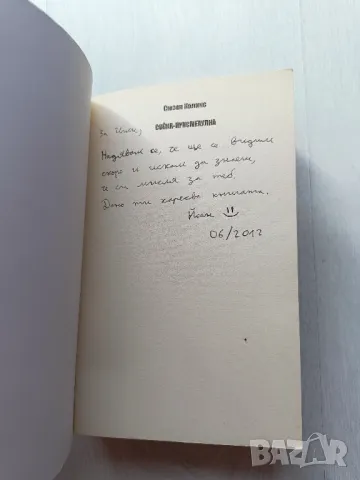 Сюзан Колинс
СОЙКА-ПРИСМЕХУЛКА
За
Надявам се, че ще се видим
скоро и искам да знаеш,
че си мисля за теб.
Дано ти хареса книгата.
Йоан
06/2012
BAZAR
bg